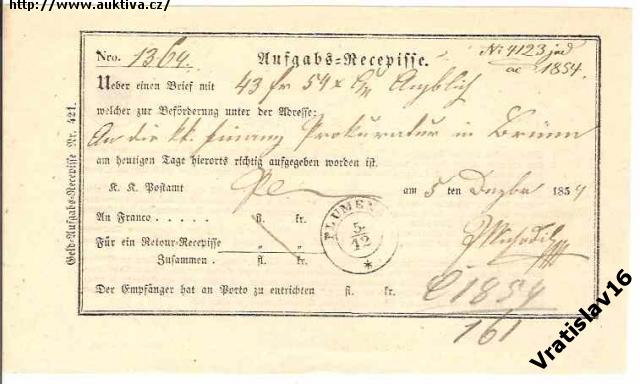 http://www.auktiva.cz/
Nro. 1364. Aufgabs=Recepisse. Nr 4123 jud
ac 1854.
Ueber einen Brief mit 43 fr 54 x Angblich
welcher zur Beförderung unter der Adresse:
An die kk. Finanz Prokuratur in Brünn
am heutigen Tage hierorts richtig aufgegeben worden ist.
K. K. Postamt am 5 ten Dezber 1854
An Franco . . . . . fl. kr.
Für ein Retour=Recepisse " "
Zusammen . fl. kr.
Der Empfänger hat an Porto zu entrichten fl. kr.
PLUMENAU
5/12
C 1854
161
Geld=Aufgabs=Recepisse Nr. 421.
Vratislav16